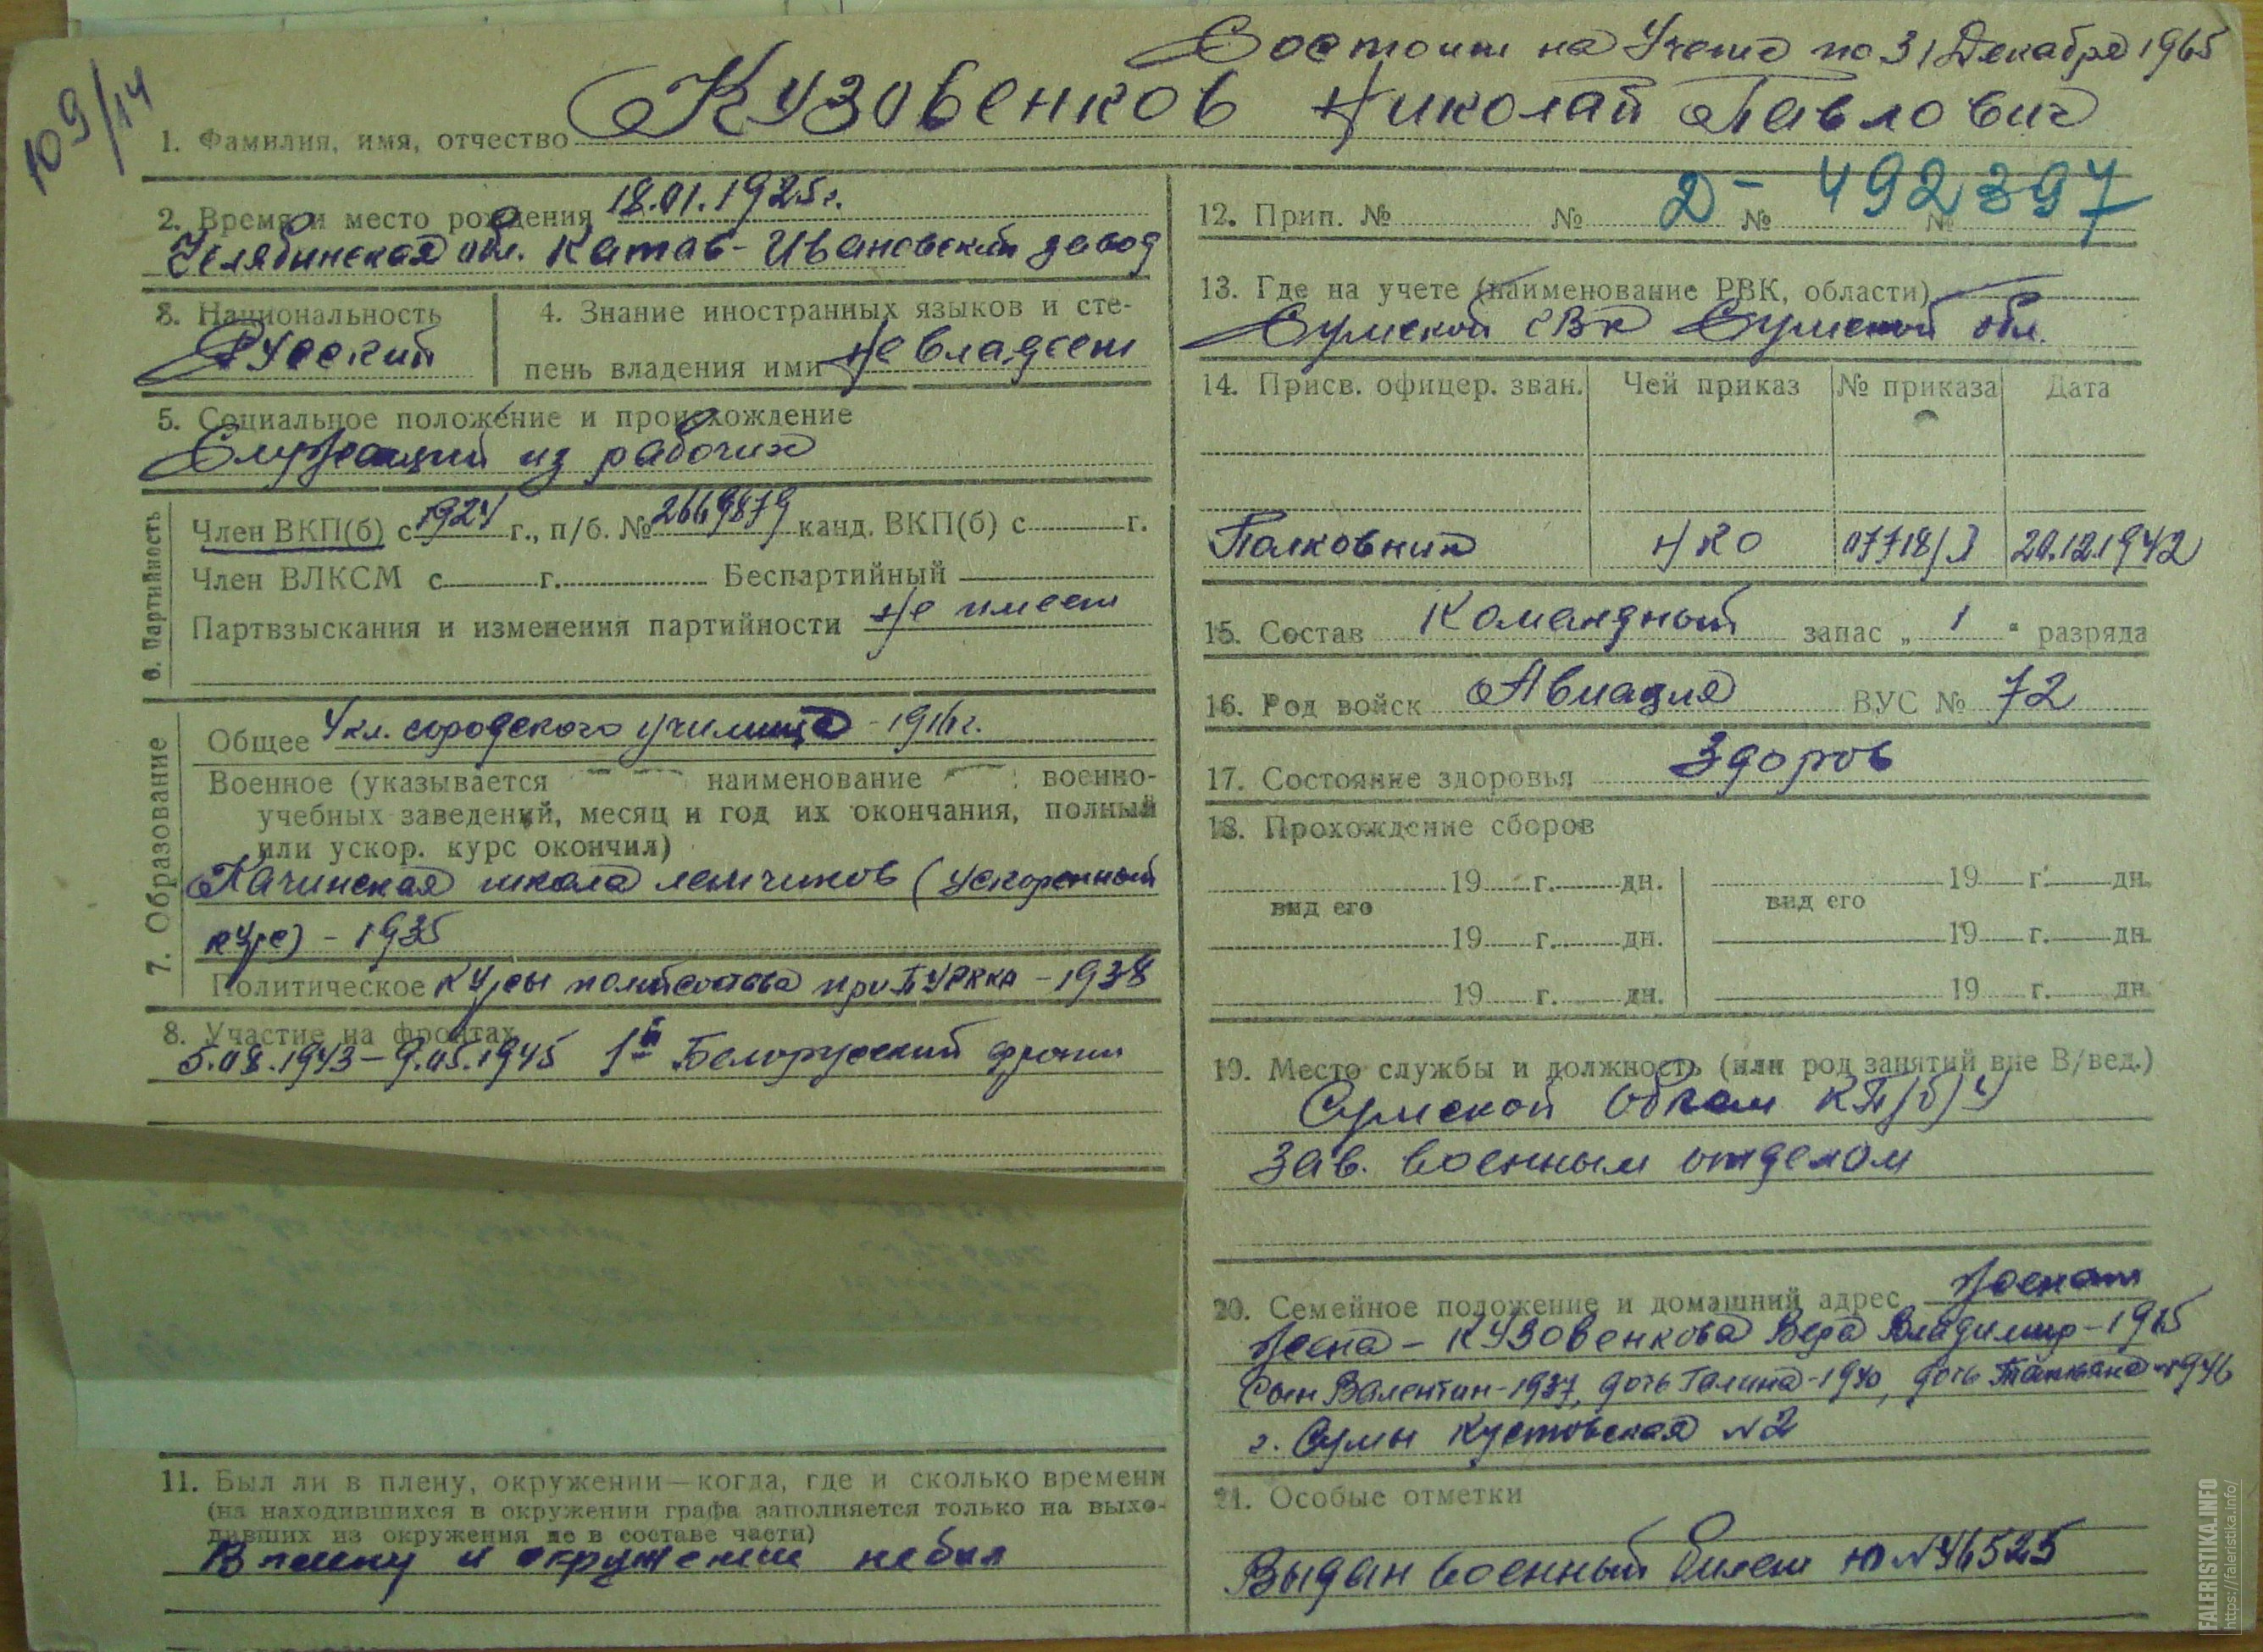 Состоит на Учете по 31 Декабря 1965
109/14
1. Фамилия, имя, отчество Кузовенков Николай Павлович
2. Время и место рождения 18.01.1925г.
Челябинская обл. Катав-Ивановский завод
3. Национальность
Русский
4. Знание иностранных языков и сте-
пень владения ими Не владеет
5. Социальное положение и происхождение
Служащий из рабочих
6. Партийность
Член ВКП(б) с 1924 г., п/б. № 2669879 канд. ВКП(б) с г.
Член ВЛКСМ с г. Беспартийный
Партвзыскания и изменения партийности Не имеет
7. Образование
Общее 4 кл. городского училища - 1916г.
Военное (указывается наименование военно-
учебных заведений, месяц и год их окончания, полный
или ускор. курс окончил)
Качинская школа летчиков (ускоренный
курс) - 1935
Политическое Курсы политсостава при ПУРККА - 1938
8. Участие на фронтах
5.08.1943 - 9.05.1945 1й Белорусский фронт
11. Был ли в плену, окружении—когда, где и сколько времени
(на находившихся в окружении графа заполняется только на выхо-
дивших из окружения не в составе части)
В плену и окружении не был
12. Прип. № № Д- № 492397 №
13. Где на учете (наименование РВК, области)
Сумской ГВК Сумской обл.
14. Присв. офицер. зван. Чей приказ № приказа Дата
Полковник НКО 07718/3 20.12.1942
15. Состав Командный запас „ 1 " разряда
16. Род войск Авиация ВУС № 72
17. Состояние здоровья Здоров
18. Прохождение сборов
19 г. дн. 19 г. дн.
вид его вид его
19 г. дн. 19 г. дн.
19 г. дн. 19 г. дн.
19. Место службы и должность (или род занятий вне В/вед.)
Сумской Обком КП(б)У
Зав. военным отделом
20. Семейное положение и домашний адрес Женат
Жена - Кузовенкова Вера Владимир - 1915
Сын Валентин - 1937, дочь Галина - 1940, дочь Татьяна - 1946
г. Сумы Кустовская №2
21. Особые отметки
Выдан военный билет Ю №46525
FALERISTIKA.INFO
https://faleristika.info/